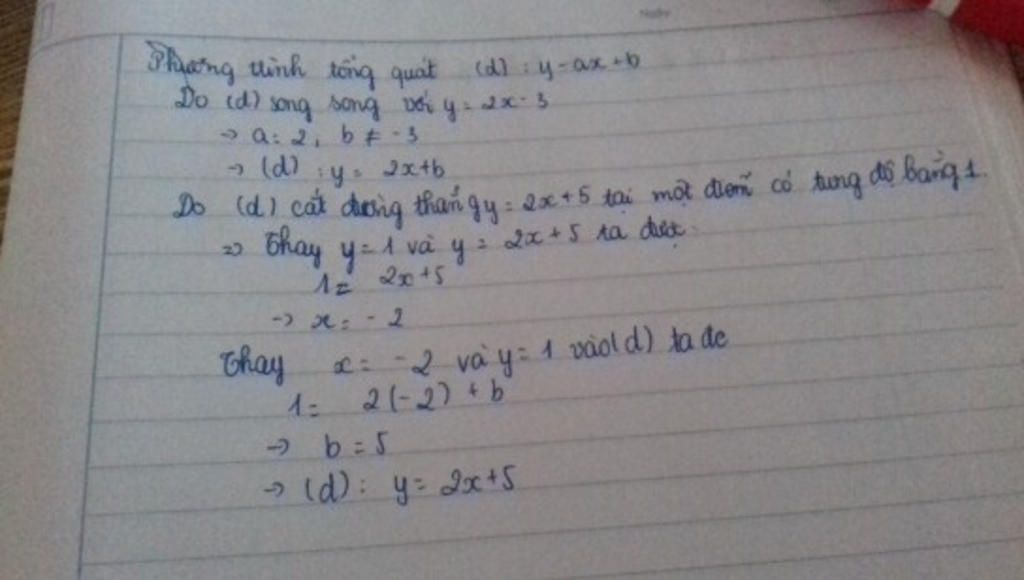 Phương trình tổng quát (d) : y = ax + b
Do (d) song song với y = 2x - 3
→ a = 2, b ≠ -3
→ (d) : y = 2x+b
Do (d) cắt đường thẳng y = 2x+5 tại một điểm có tung độ bằng 1.
=> Thay y = 1 và y = 2x + 5 ta được:
1 = 2x + 5
→ x = -2
Thay x = -2 và y = 1 vào (d) ta đc
1 = 2(-2) + b
→ b = 5
→ (d) : y = 2x+5